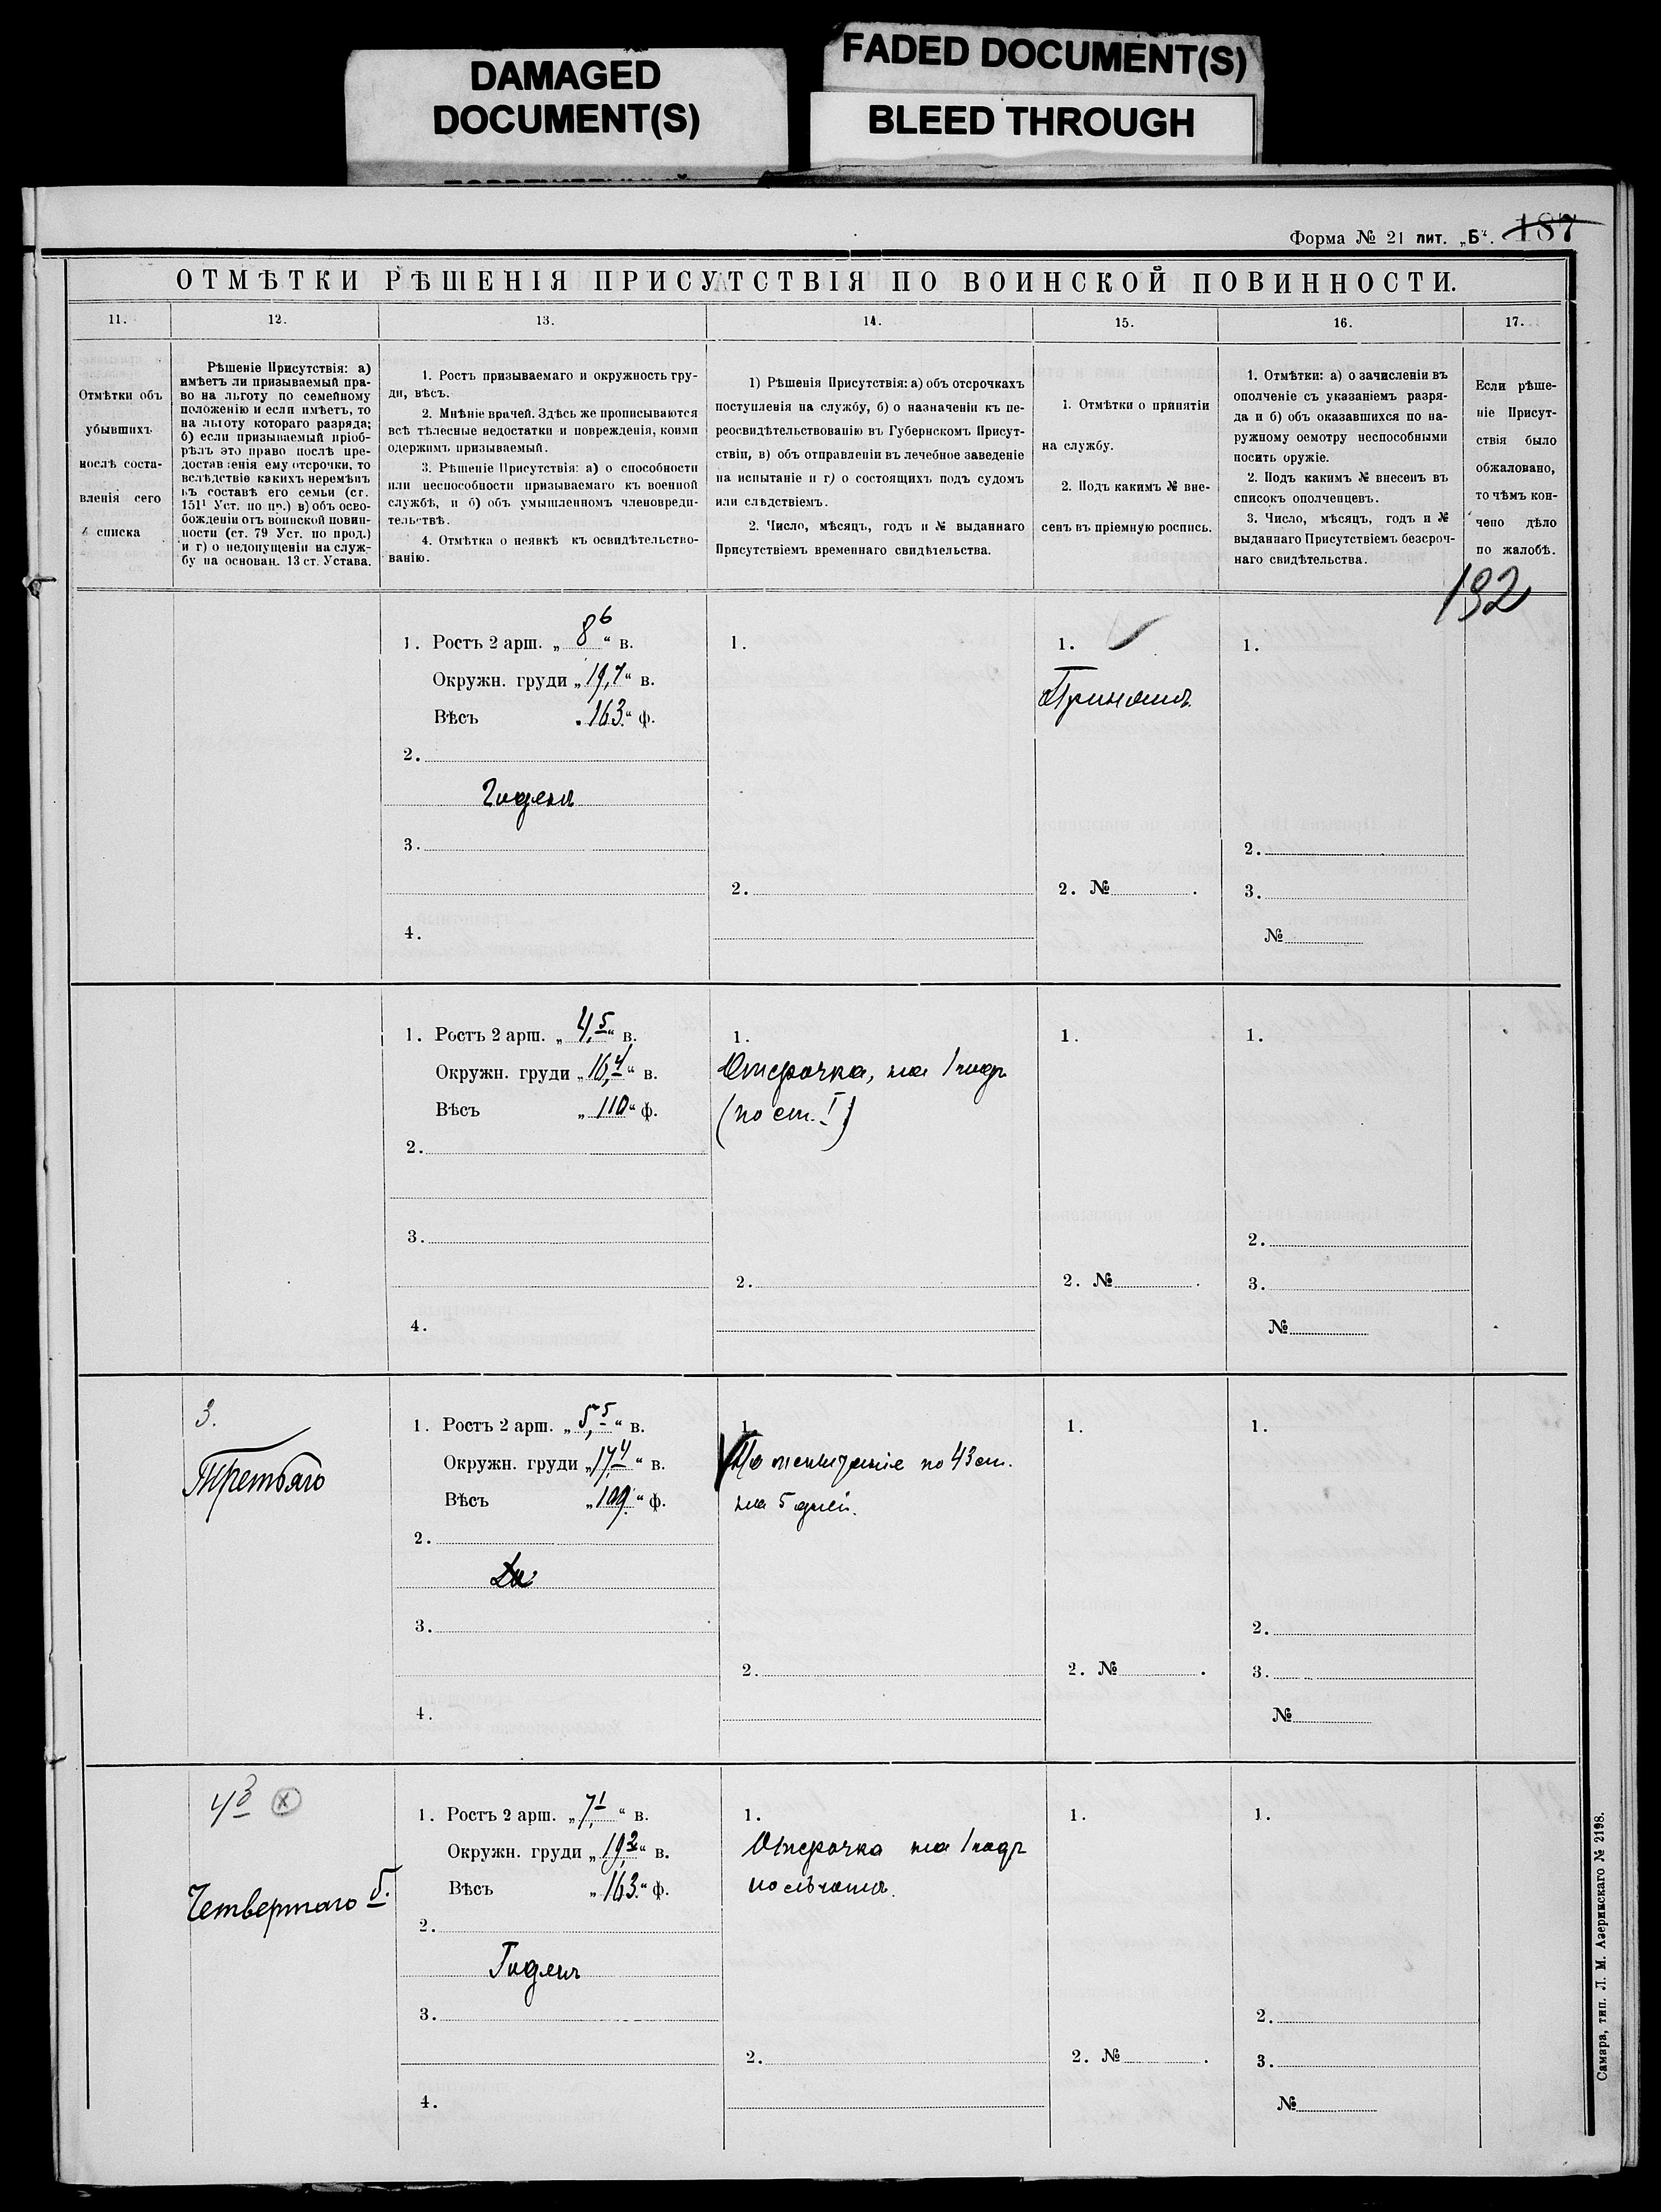 DAMAGED
DOCUMENT(S)
FADED DOCUMENT(S)
BLEED THROUGH
Форма № 21 лит. „Б“. 187
ОТМѢТКИ РѢШЕНІЯ ПРИСУТСТВІЯ ПО ВОИНСКОЙ ПОВИННОСТИ.
11. 12. 13. 14. 15. 16. 17.
Отмѣтки объ
убывшихъ
послѣ соста-
вленія сего
списка
Рѣшеніе Присутствія: а)
имѣетъ ли призываемый пра-
во на льготу по семейному
положенію и если имѣетъ, то
на льготу котораго разряда;
б) если призываемый пріоб-
рѣлъ это право послѣ пре-
доставленія ему отсрочки, то
вслѣдствіе какихъ перемѣнъ
въ составѣ его семьи (ст.
151¹ Уст. по пр.) в) объ осво-
божденіи отъ воинской повин-
ности (ст. 79 Уст. по прод.)
и г) о недопущеніи на служ-
бу на основан. 13 ст. Устава.
1. Ростъ призываемаго и окружность гру-
ди, вѣсъ.
2. Мнѣніе врачей. Здѣсь же прописываются
всѣ тѣлесные недостатки и поврежденія, коими
одержимъ призываемый.
3. Рѣшеніе Присутствія: а) о способности
или неспособности призываемаго къ военной
службѣ, и б) объ умышленномъ членовреди-
тельствѣ.
4. Отмѣтка о неявкѣ къ освидѣтельство-
ванію.
1) Рѣшенія Присутствія: а) объ отсрочкахъ
поступленія на службу, б) о назначеніи къ пе-
реосвидѣтельствованію въ Губернскомъ Присут-
ствіи, в) объ отправленіи въ лечебное заведеніе
на испытаніе и г) о состоящихъ подъ судомъ
или слѣдствіемъ.
2. Число, мѣсяцъ, годъ и № выданнаго
Присутствіемъ временнаго свидѣтельства.
1. Отмѣтки о принятіи
на службу.
2. Подъ какимъ № вне-
сенъ въ пріемную роспись.
1. Отмѣтки: а) о зачисленіи въ
ополченіе съ указаніемъ разря-
да и б) объ оказавшихся по на-
ружному осмотру неспособными
носить оружіе.
2. Подъ какимъ № внесенъ въ
списокъ ополченцевъ.
3. Число, мѣсяцъ, годъ и №
выданнаго Присутствіемъ безсроч-
наго свидѣтельства.
Если рѣше-
ніе Присут-
ствія было
обжаловано,
то чѣмъ кон-
чено дѣло
по жалобѣ.
192
1. Ростъ 2 арш. „ 8 6 “ в. 1. 1. 1.
Окружн. груди „ 19,7 “ в. Принятъ
Вѣсъ „ 163 “ ф.
2.
Годенъ
3. 2.
2. 2. № . 3.
4. №
1. Ростъ 2 арш. „ 4,5 “ в. 1. 1. 1.
Окружн. груди „ 16,4 “ в. Отсрочка, на 1 годъ
Вѣсъ „ 110 “ ф. (по ст. I)
2.
3. 2.
2. 2. № . 3.
4. №
3. 1. Ростъ 2 арш. „ 5,5 “ в. 1. 1. 1.
Третьяго Окружн. груди „ 17,4 “ в. на по 43 ст.
Вѣсъ „ 109 “ ф. на 5 дней.
2.
3. 2.
2. 2. № . 3.
4. №
4 3 х 1. Ростъ 2 арш. „ 7,1 “ в. 1. 1. 1.
Окружн. груди „ 19,2 “ в. Отсрочка на 1 годъ
Четвертаго б. Вѣсъ „ 163 “ ф.
2.
Годенъ
3. 2.
2. 2. № . 3.
4. №
Самара, тип. Л. М. Азерикскаго № 2198.